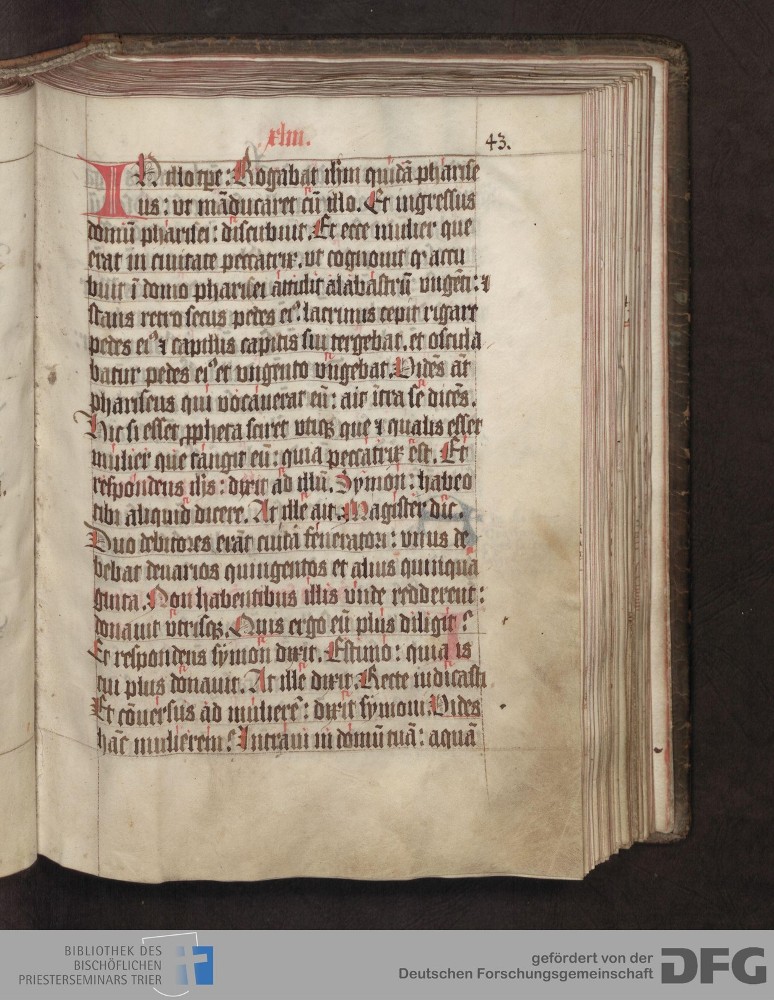 xliii.
43.
IN illo tp̄e: Rogabat ihm̄ quidā pharise
us: vt māducaret cū illo. Et ingressus
domū pharisei: discubuit. Et ecce mulier que
erat in ciuitate peccatrix. vt cognouit ꝙ accu
buit ī domo pharisei attulit alabastrū vngēti: ⁊
stans retro secus pedes eiꝰ. lacrimis cepit rigare
pedes eiꝰ ⁊ capillis capitis sui tergebat. et oscula
batur pedes eiꝰ et vngento vngebat. Vidēs aūt
phariseus qui vocauerat eū: ait ītra se dicēs.
Hic si esset ꝓpheta sciret vtiqꝫ que ⁊ qualis esset
mulier que tangit eū: quia peccatrix est. Et
respondens ihs: dixit ad illū. Symon: habeo
tibi aliquid dicere. At ille ait. Magister dic.
Duo debitores erāt cuidā feneratori: vnus de
bebat denarios quingentos et alius quinqua
ginta. Non habentibus illis vnde redderent:
donauit vtrisqꝫ. Quis ergo eū plus diligit?
Et respondens symon dixit. Estimo: quia is
cui plus donauit. At ille dixit. Recte iudicasti
Et cōuersus ad mulierē: dixit symoni. Vides
hāc mulierem? Intraui in domū tuā: aquā
BIBLIOTHEK DES
BISCHÖFLICHEN
PRIESTERSEMINARS TRIER
gefördert von der
Deutschen Forschungsgemeinschaft DFG